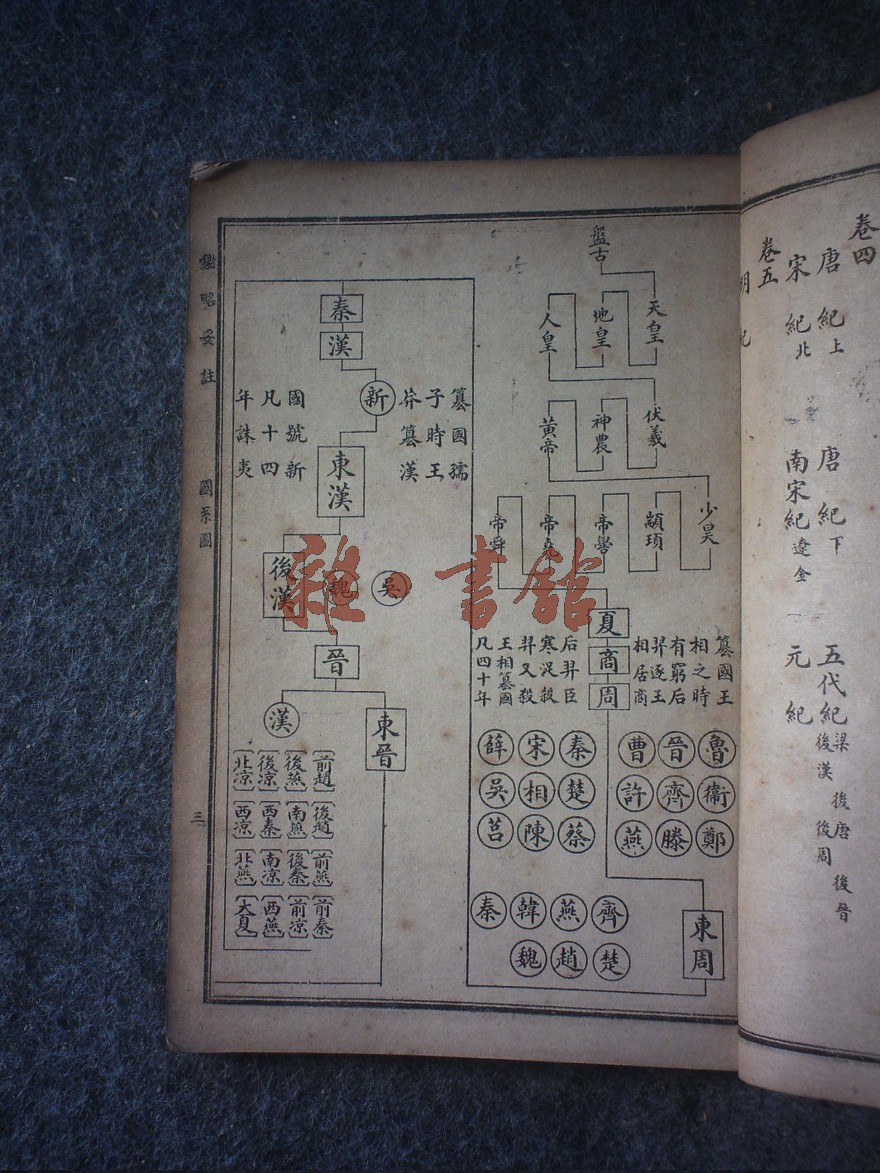 卷四
唐紀上　唐紀下　五代紀梁 後唐 後晉 後漢 後周
宋紀北　南宋紀遼金　元紀
卷五
明紀
盤古
天皇
地皇
人皇
伏羲
神農
黃帝
少昊
顓頊
帝嚳
帝堯
帝舜
夏
商
周
篡國王
相之時
有窮后
羿逐王
相居商
后羿臣
寒浞殺
羿又殺
王相篡國
凡四十年
魯 晉 曹
衞 齊 許
鄭 滕 燕
秦 宋 薛
楚 相 吳
蔡 陳 莒
東周
齊 燕 韓 秦
楚 趙 魏
秦
漢
新
篡國孺
子時王
莽篡漢
國號新
凡十四
年誅夷
東漢
後漢
魏
吳
晉
東晉
漢
前趙 後燕 後涼 北涼
後趙 南燕 西秦 西涼
前燕 後秦 南涼 北燕
前秦 前涼 西燕 大夏
鑑略妥註　國系圖　三
雜·書館